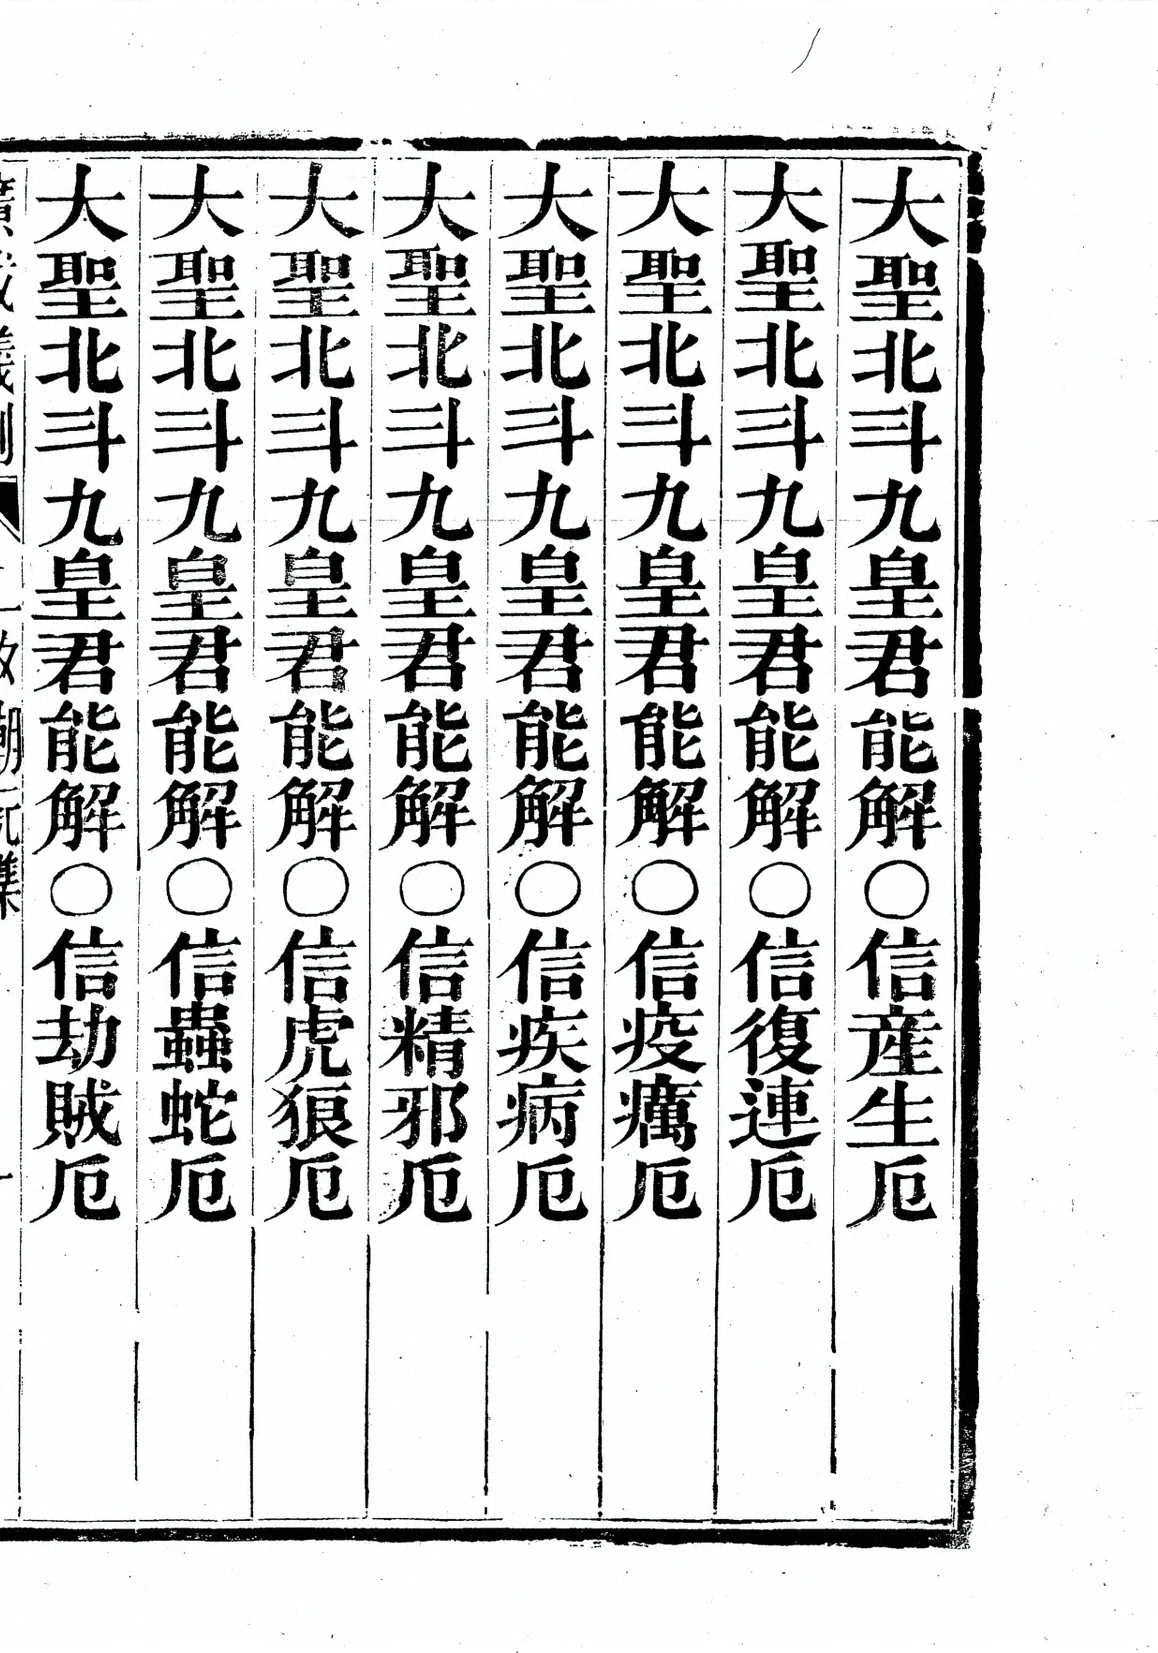 大聖北斗九皇君能解○信產生厄
大聖北斗九皇君能解○信復連厄
大聖北斗九皇君能解○信疫癘厄
大聖北斗九皇君能解○信疾病厄
大聖北斗九皇君能解○信精邪厄
大聖北斗九皇君能解○信虎狼厄
大聖北斗九皇君能解○信蟲蛇厄
大聖北斗九皇君能解○信劫賊厄